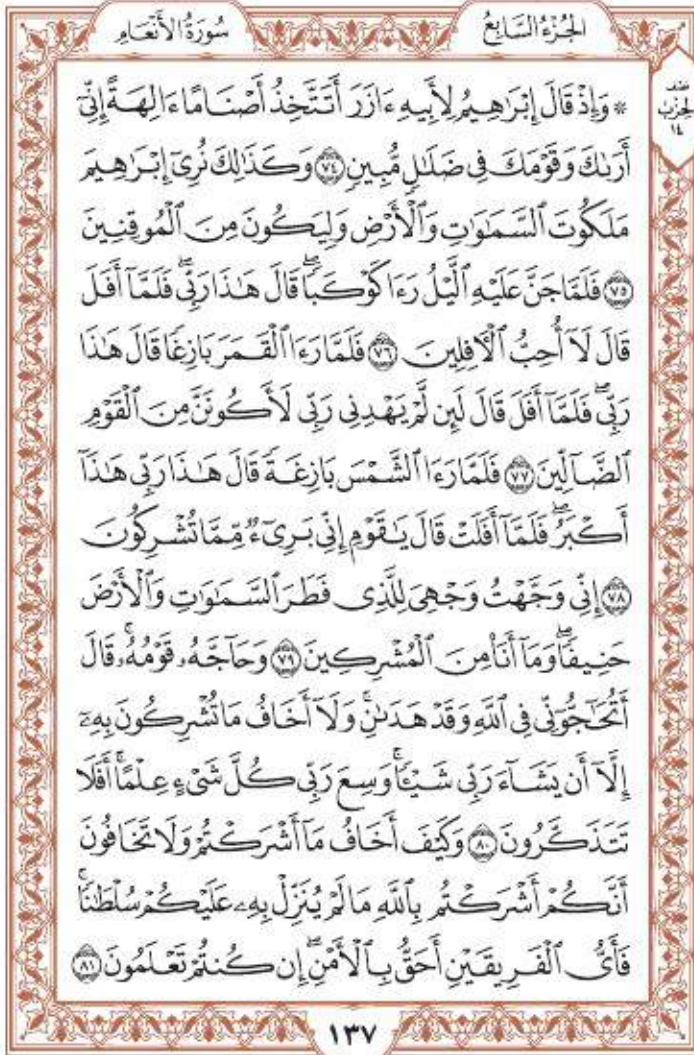 سُورَةُ الْأَنْعَامِ
الجُزْءُ السَّابِعُ
نصف
الحزب
١٤
۞ وَإِذْ قَالَ إِبْرَٰهِيمُ لِأَبِيهِ ءَازَرَ أَتَتَّخِذُ أَصْنَامًا ءَالِهَةً إِنِّيٓ
أَرَىٰكَ وَقَوْمَكَ فِى ضَلَٰلٍ مُّبِينٍ ٧٤ وَكَذَٰلِكَ نُرِىٓ إِبْرَٰهِيمَ
مَلَكُوتَ ٱلسَّمَٰوَٰتِ وَٱلْأَرْضِ وَلِيَكُونَ مِنَ ٱلْمُوقِنِينَ
٧٥ فَلَمَّا جَنَّ عَلَيْهِ ٱلَّيْلُ رَءَا كَوْكَبًا ۖ قَالَ هَٰذَا رَبِّى ۖ فَلَمَّآ أَفَلَ
قَالَ لَآ أُحِبُّ ٱلْءَافِلِينَ ٧٦ فَلَمَّا رَءَا ٱلْقَمَرَ بَازِغًا قَالَ هَٰذَا
رَبِّى ۖ فَلَمَّآ أَفَلَ قَالَ لَئِن لَّمْ يَهْدِنِى رَبِّى لَأَكُونَنَّ مِنَ ٱلْقَوْمِ
ٱلضَّآلِّينَ ٧٧ فَلَمَّا رَءَا ٱلشَّمْسَ بَازِغَةً قَالَ هَٰذَا رَبِّى هَٰذَآ
أَكْبَرُ ۖ فَلَمَّآ أَفَلَتْ قَالَ يَٰقَوْمِ إِنِّى بَرِىٓءٌ مِّمَّا تُشْرِكُونَ
٧٨ إِنِّى وَجَّهْتُ وَجْهِىَ لِلَّذِى فَطَرَ ٱلسَّمَٰوَٰتِ وَٱلْأَرْضَ
حَنِيفًا ۖ وَمَآ أَنَا۠ مِنَ ٱلْمُشْرِكِينَ ٧٩ وَحَآجَّهُۥ قَوْمُهُۥ ۚ قَالَ
أَتُحَٰٓجُّوٓنِّى فِى ٱللَّهِ وَقَدْ هَدَىٰنِ ۚ وَلَآ أَخَافُ مَا تُشْرِكُونَ بِهِۦٓ
إِلَّآ أَن يَشَآءَ رَبِّى شَيْـًٔا ۗ وَسِعَ رَبِّى كُلَّ شَىْءٍ عِلْمًا ۗ أَفَلَا
تَتَذَكَّرُونَ ٨٠ وَكَيْفَ أَخَافُ مَآ أَشْرَكْتُمْ وَلَا تَخَافُونَ
أَنَّكُمْ أَشْرَكْتُم بِٱللَّهِ مَا لَمْ يُنَزِّلْ بِهِۦ عَلَيْكُمْ سُلْطَٰنًا ۚ
فَأَىُّ ٱلْفَرِيقَيْنِ أَحَقُّ بِٱلْأَمْنِ ۖ إِن كُنتُمْ تَعْلَمُونَ ٨١
١٣٧